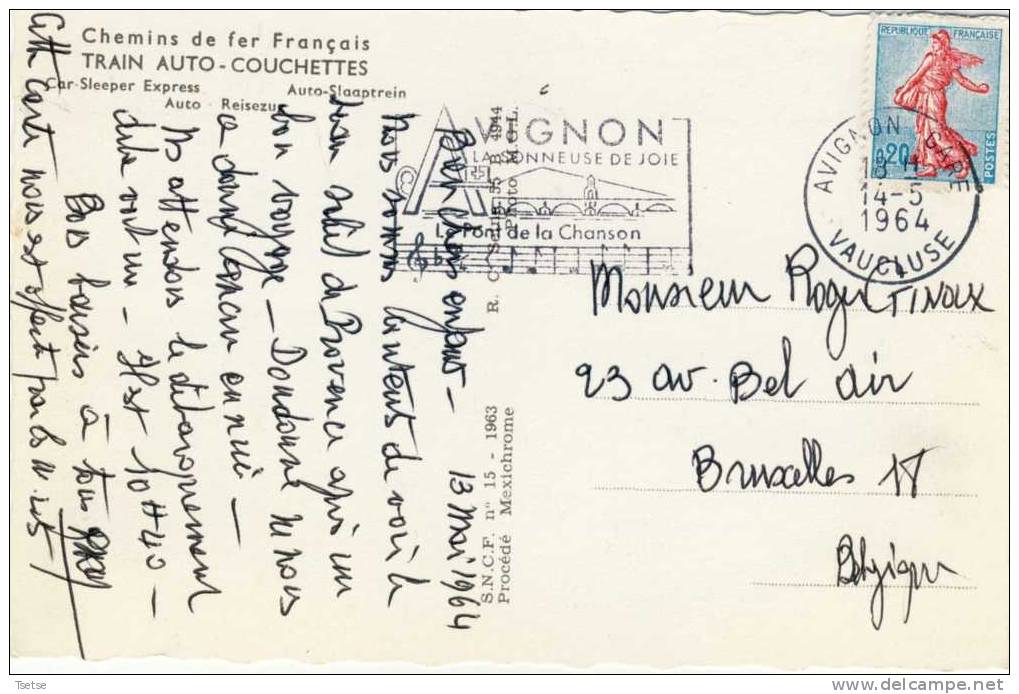 Chemins de fer Français
TRAIN AUTO-COUCHETTES
Car-Sleeper Express Auto-Slaaptrein
Auto Reisezug
AVIGNON
LA SONNEUSE DE JOIE
Le Pont de la Chanson
REPUBLIQUE FRANÇAISE
0,20
POSTES
AVIGNON GARE
18 H
14-5
1964
VAUCLUSE
R. C. Seine 55 B 4944
Photo M.G.L.
S.N.C.F. n° 15 - 1963
Procédé Mexichrome
13 Mai 1964
Bien chers enfants —
Nous sommes contents de voir le
bon soleil de Provence après un
bon voyage — Dondonné ne nous
a dans la nuit —
Ns attendons le débarquement
de la voiture — Il est 10H40 —
Bons baisers à tous
Cette carte nous est offerte par la
Monsieur Roger TINOIX
23 av. Bel air
Bruxelles 18
Belgique
Tsetse
delcampe.net